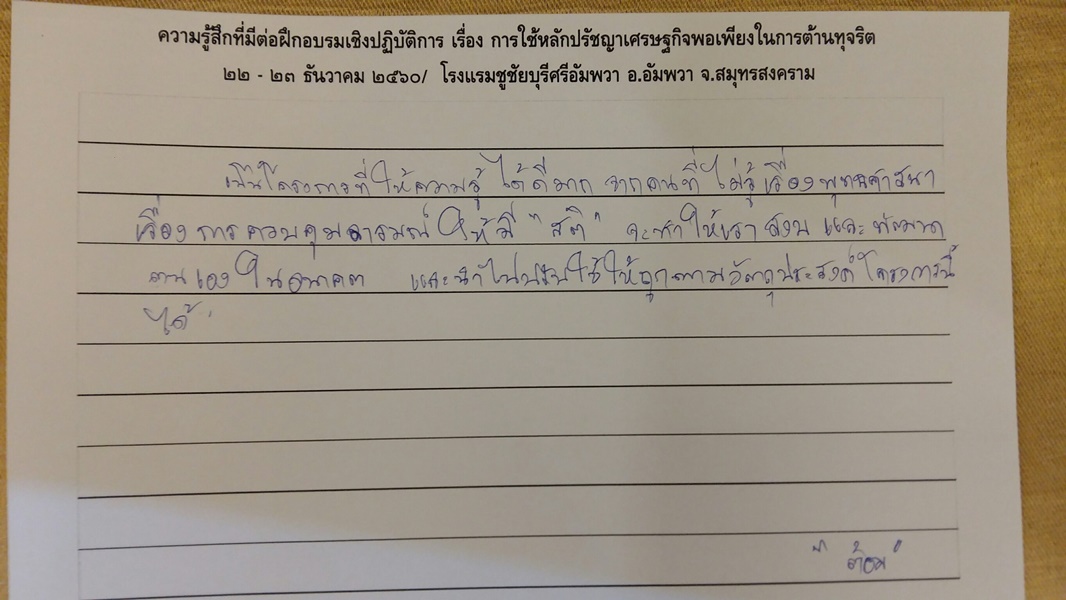 ความรู้สึกที่มีต่อฝึกอบรมเชิงปฏิบัติการ เรื่อง การใช้หลักปรัชญาเศรษฐกิจพอเพียงในการต้านทุจริต
๒๒ - ๒๓ ธันวาคม ๒๕๖๐/ โรงแรมชูชัยบุรีศรีอัมพวา อ.อัมพวา จ.สมุทรสงคราม
เป็นโครงการที่ให้ความรู้ ได้ดีมาก จากคนที่ไม่รู้เรื่องพุทธศาสนา
เรื่องการควบคุมอารมณ์ให้มี "สติ" จะทำให้เราสงบ และพัฒนา
ตนเองในอนาคต และนำไปปรับใช้ให้ถูกตามวัตถุประสงค์โครงการนี้
ได้
"ต้อม"